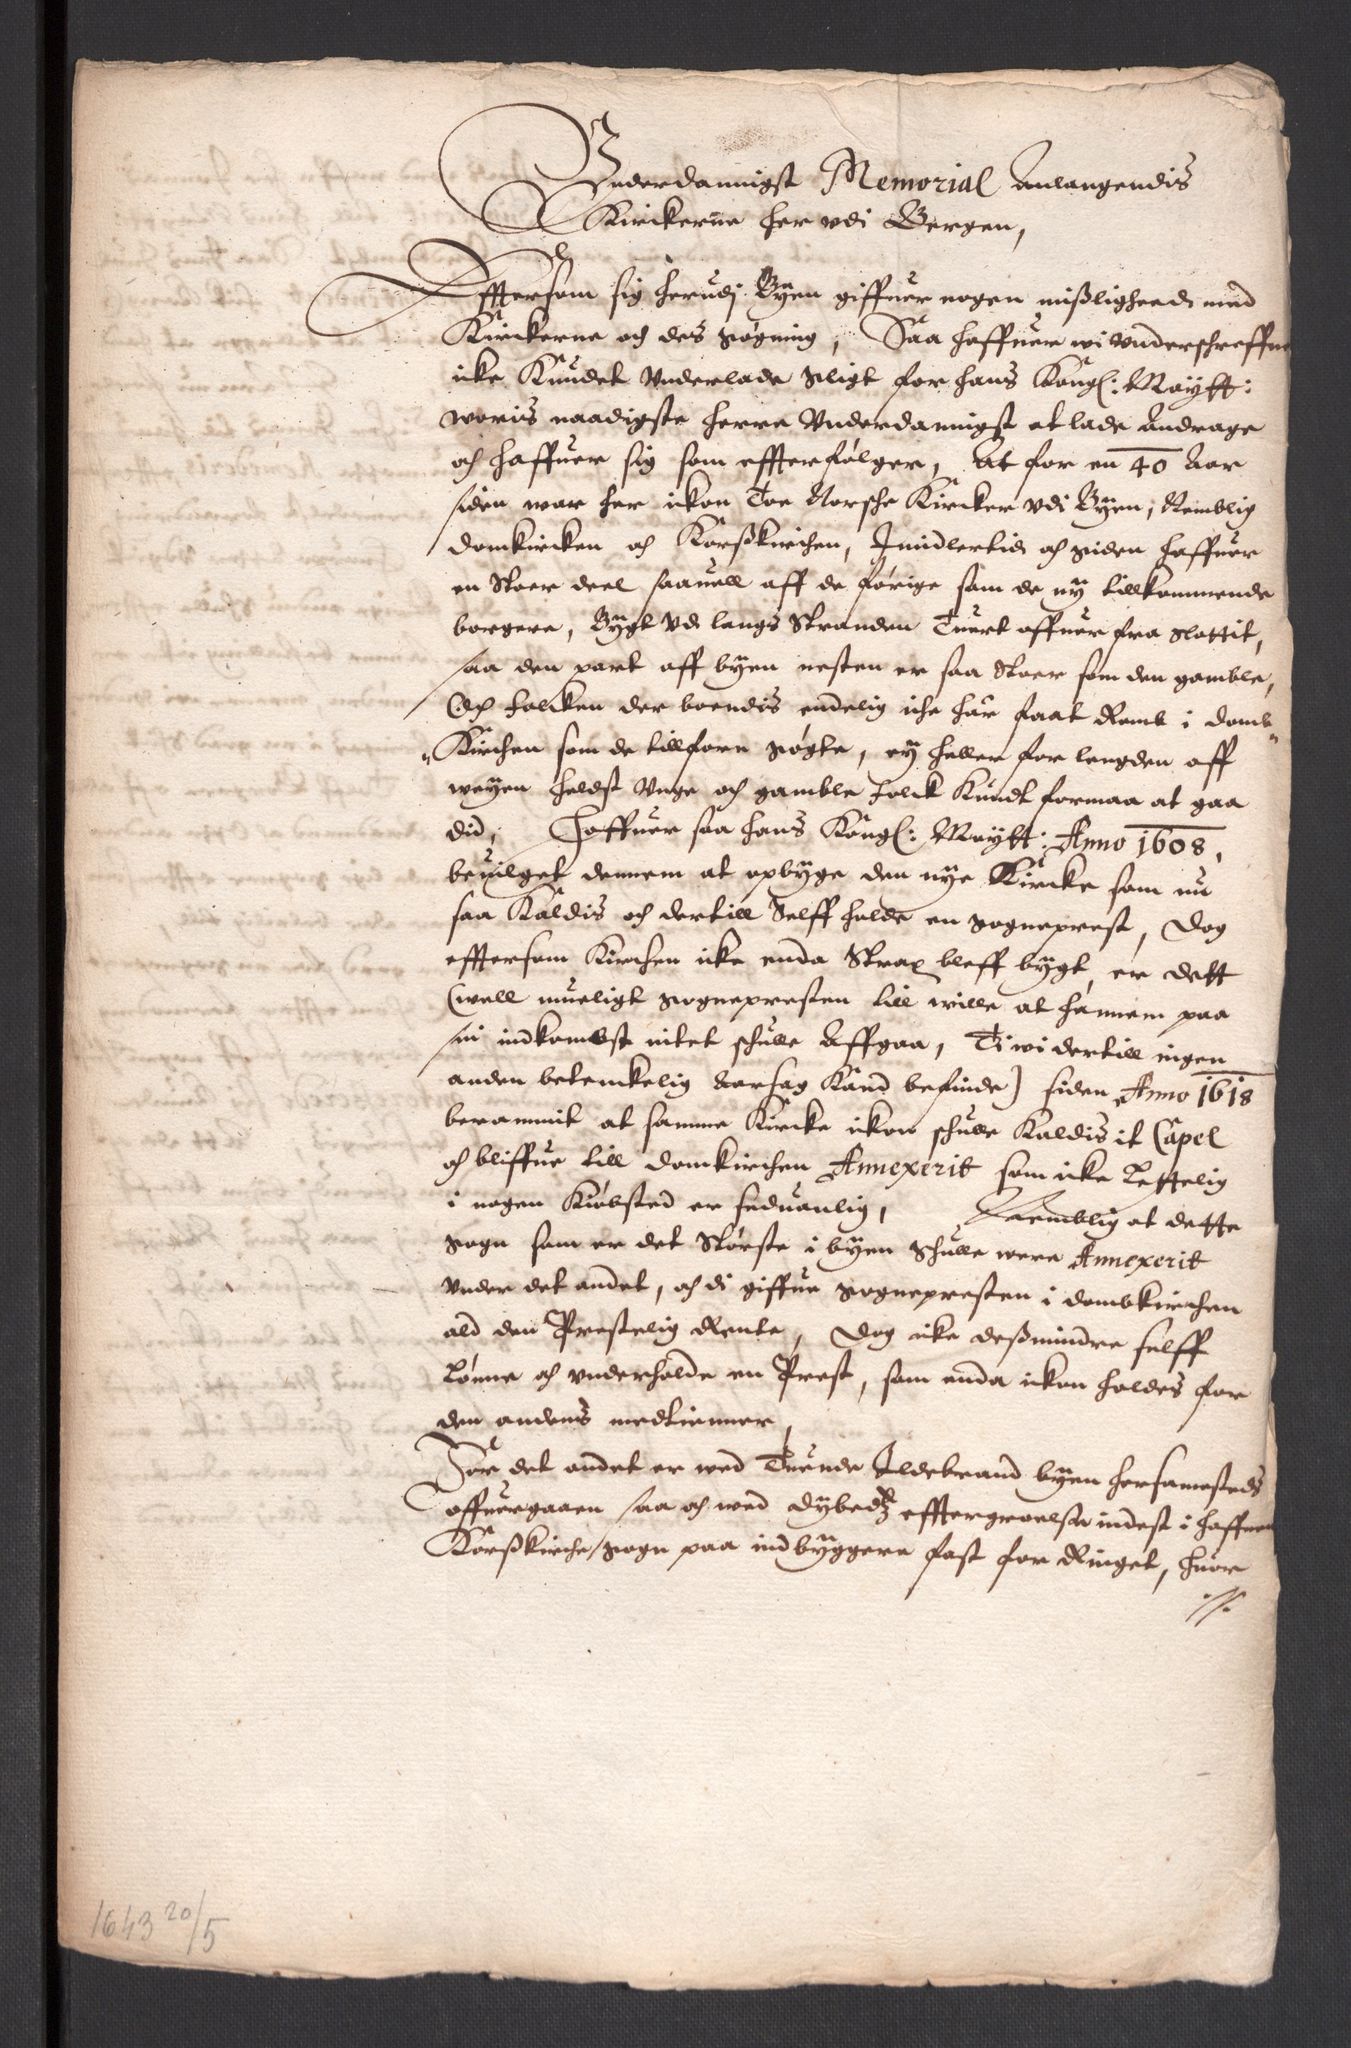 Vnderdannigst Memorial Anlangendis
Kirckerne her vdi Bergen,
Efftersom sig herudj Byen giffuer nogen misligheed med
Kirckerne och des søgning, Saa haffuer wi Vnderschreffne
icke Kundet Vnderlade pligt for hans Kongl: Maytt:
woris naadigste herre Vnderdannigst at lade Andrage
och haffuer sig som effterfølger, At for en 40 Aar
siden war her ickon Toe Norsche Kircker vdi Byen, Nemblig
Domkircken och Korsskirchen, Imidlertid och siden haffuer
en Stoer deel saauell aff de förige som de ny tillkommende
borgere, Bygt Vd langs Stranden Tuert offuer fra slottit,
saa den part aff byen nesten er saa Stoer som den gamble,
Och folcken der boendis endelig iche har faat Romb i domb
Kirchen som de tillforn søgte, ey heller for lengden aff
weyen heldst Vnge och gamble folck Kundt formaa at gaa
did, Haffuer saa hans Kongl: Maytt: Anno 1608,
beuilget dennem at opbyge den nye Kircke som nu
saa Kaldis och dertill Selff holde en sogneprest, Dog
efftersom Kirchen icke enda Strax bleff bygt, er dett
(well mueligt sognepresten till wille at hannem paa
sin indkombst intet schulle Affgaa, Ti wi dertill ingen
anden betenckelig Aarsag Kand befinde) siden Anno 1618
berammit at samme Kircke ickon schulle Kaldis it Capel
och bliffue till domkirchen Annexerit som icke Lettelig
i nogen Kiøbsted er seduanlig, Naemblig at dette
sogn som er det Største i byen schulle were Annexerit
vnder det andet, och di giffue sognepresten i dombkirchen
ald den Prestelig Rente, Dog icke dessmindre selff
Lønne och vnderholde en Prest, som enda ickon holdes for
den andens medtienner,
For det andet er wed Tuende Ildebrand byen hersamesteds
offuergaaen saa och wed dybedz efftergroelse indest i haffnen
Korsskirche sogn paa indbyggere fast for Ringet, huor
1643 20/5